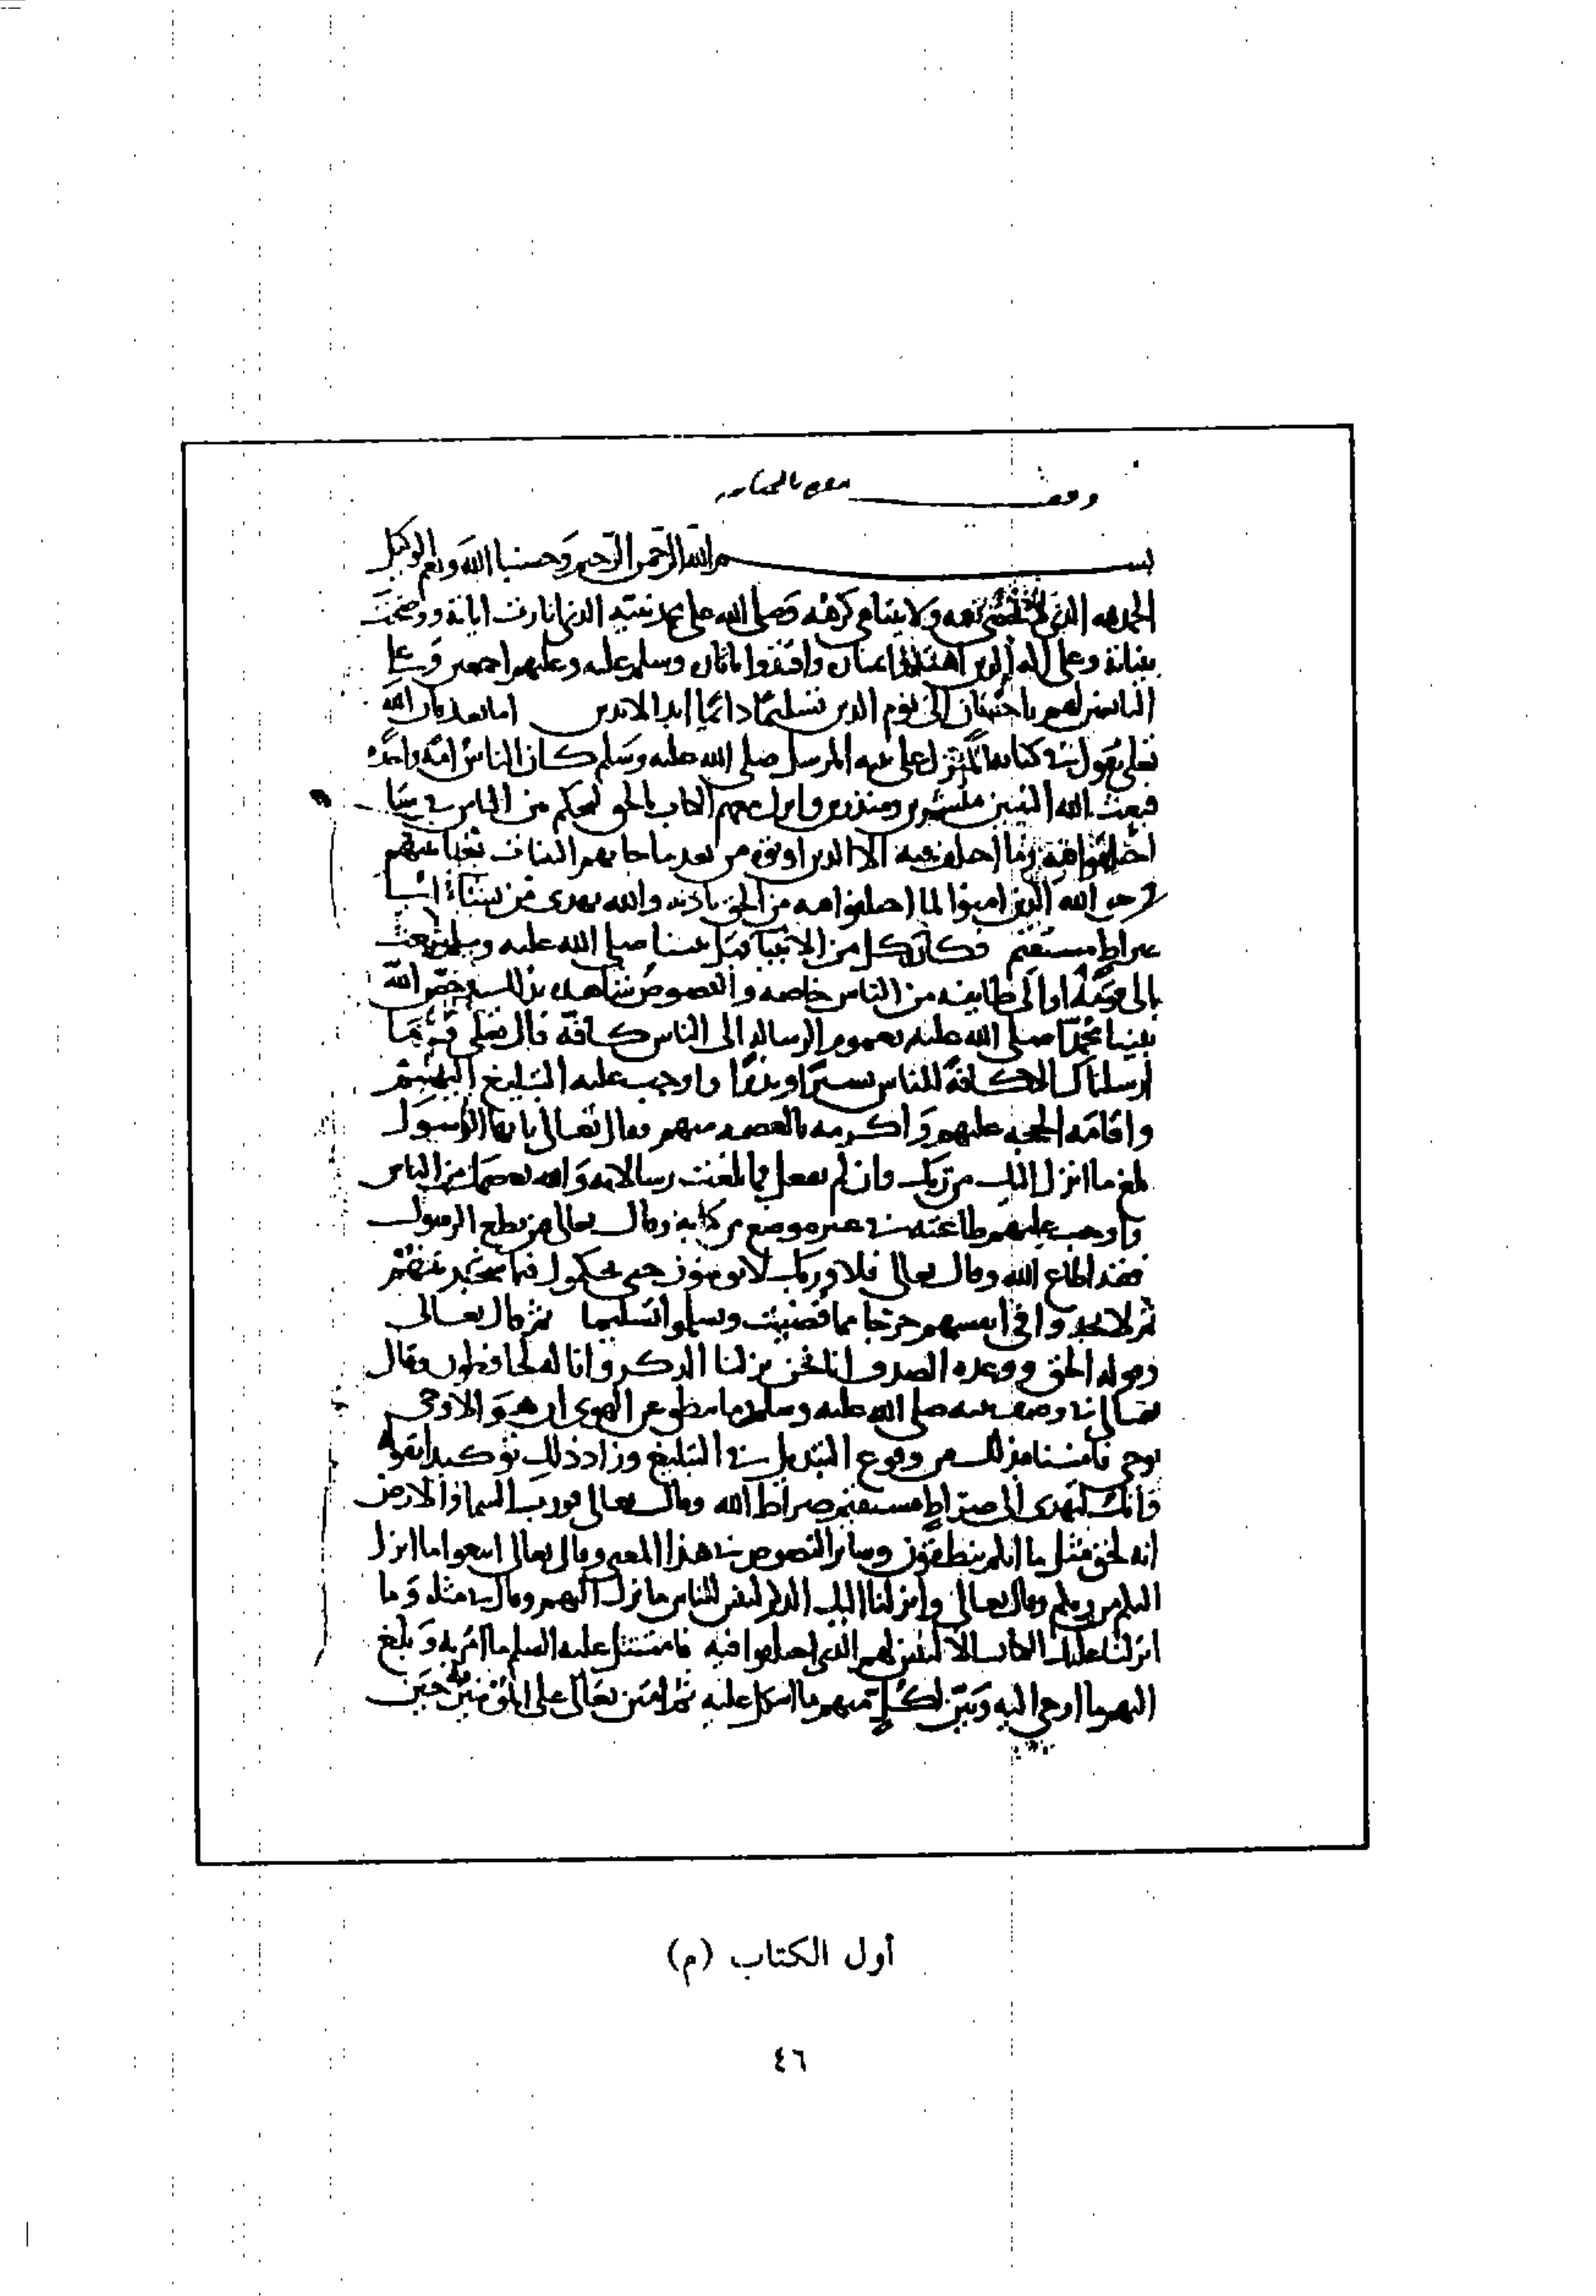 وقف
بسم الله الرحمن الرحيم وحسبنا الله ونعم الوكيل
الحمد لله الذي لا نعمه ولا يتناهى كرمه وصلى الله على محمد نبيه الذي انارت اياته ووضحت
بيناته وعلى اله الذين اهتدوا واقتدوا وسلم عليه وعليهم اجمعين وعلى
التابعين لهم باحسان الى يوم الدين تسليما دائما ابد الابدين اما بعد فان الله
تعلى يقول في كتابه المنزل على نبيه المرسل صلى الله عليه وسلم كان الناس امة واحدة
فبعث الله النبيين مبشرين ومنذرين وانزل معهم الكتاب بالحق ليحكم بين الناس فيما
اختلفوا فيه وما اختلف فيه الا الذين اوتوه من بعد ما جاتهم البينات بغيا بينهم
فهدى الله الذين امنوا لما اختلفوا فيه من الحق باذنه والله يهدي من يشاء الى
صراط مستقيم فكان كل من الانبيا قبل نبينا صلى الله عليه وسلم يبعث
الى قومه او الى طايفة من الناس خاصة والنصوص شاهدة بذلك وخص الله
نبينا محمدا صلى الله عليه بعموم الرسالة الى الناس كافة قال تعلى وما
ارسلناك الا كافة للناس بشيرا ونذيرا واوجب عليه التبليغ اليهم
واقامة الحجة عليهم واكرمه بالعصمة منهم فقال تعالى يا ايها الرسول
بلغ ما انزل اليك من ربك وان لم تفعل فما بلغت رسالاته والله يعصمك من الناس
واوجب عليهم طاعته في غير موضع من كتابه وقال تعالى من يطع الرسول
فقد اطاع الله وقال تعالى فلا وربك لا يومنون حتى يحكموك فيما شجر بينهم
ثم لا يجدوا في انفسهم حرجا مما قضيت ويسلموا تسليما ثم قال تعالى
وقوله الحق ووعده الصدق انا نحن نزلنا الذكر وانا له لحافظون وقال
تعالى في وصف نبيه صلى الله عليه وسلم وما ينطق عن الهوى ان هو الا وحي
يوحى فامنا بذلك من وقوع التبديل في التبليغ وزاد ذلك توكيدا بقوله
وانك لتهدي الى صراط مستقيم صراط الله وقال تعالى فورب السما والارض
انه لحق مثل ما انكم تنطقون وسائر النصوص في هذا المعنى وقال تعالى اتبعوا ما انزل
اليكم من ربكم وقال تعالى وانزلنا اليك الذكر لتبين للناس ما نزل اليهم وقال في مثله وما
انزلنا عليك الكتاب الا لتبين لهم الذي اختلفوا فيه فامتثل عليه السلم ما امر به وبلغ
اليهم ما اوحي اليه وبين لكل منهم ما اشكل عليه ثم امتن تعالى على المؤمنين حين
أول الكتاب (م)
٤٦